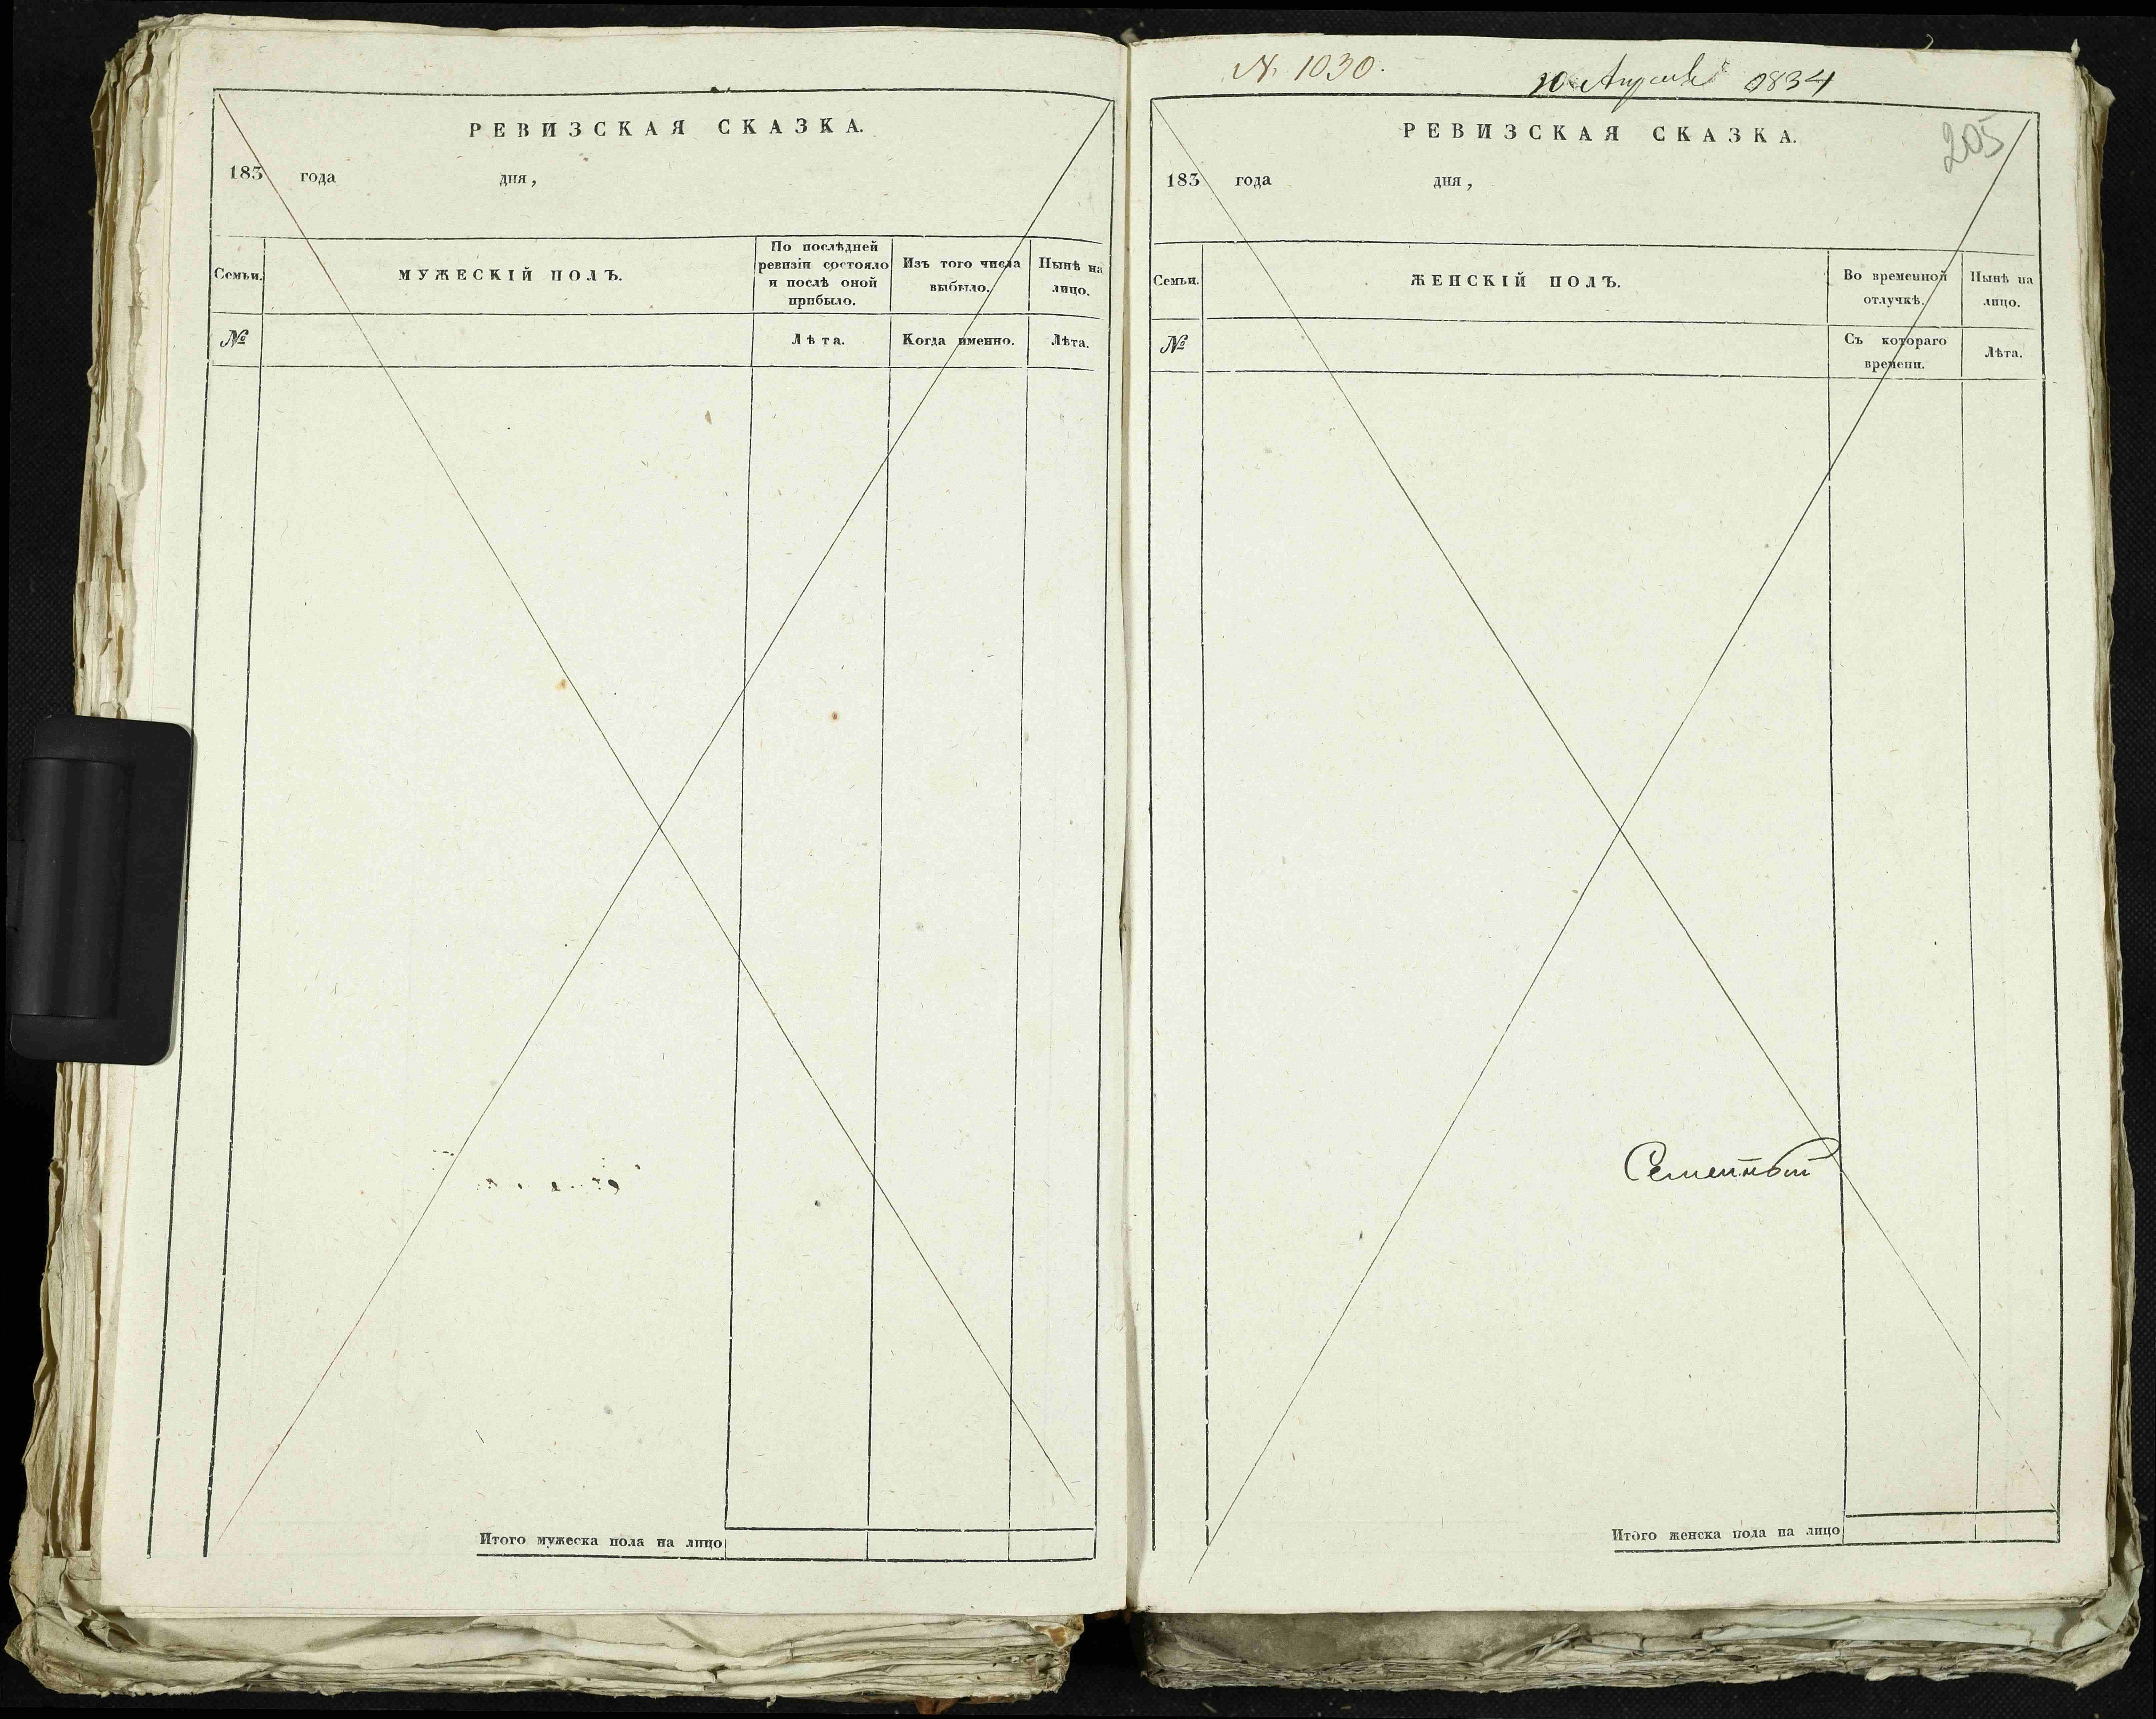 РЕВИЗСКАЯ СКАЗКА.
183 года дня,
Семьи.
МУЖЕСКІЙ ПОЛЪ.
По послѣдней
ревизіи состояло
и послѣ оной
прибыло.
Изъ того числа
выбыло.
Нынѣ на
лицо.
№
Лѣта.
Когда именно.
Лѣта.
Итого мужеска пола на лицо
N. 1030.
10 Апреля 1834
205
РЕВИЗСКАЯ СКАЗКА.
183 года дня,
Семьи.
ЖЕНСКІЙ ПОЛЪ.
Во временной
отлучкѣ.
Нынѣ на
лицо.
№
Съ котораго
времени.
Лѣта.
Итого женска пола на лицо